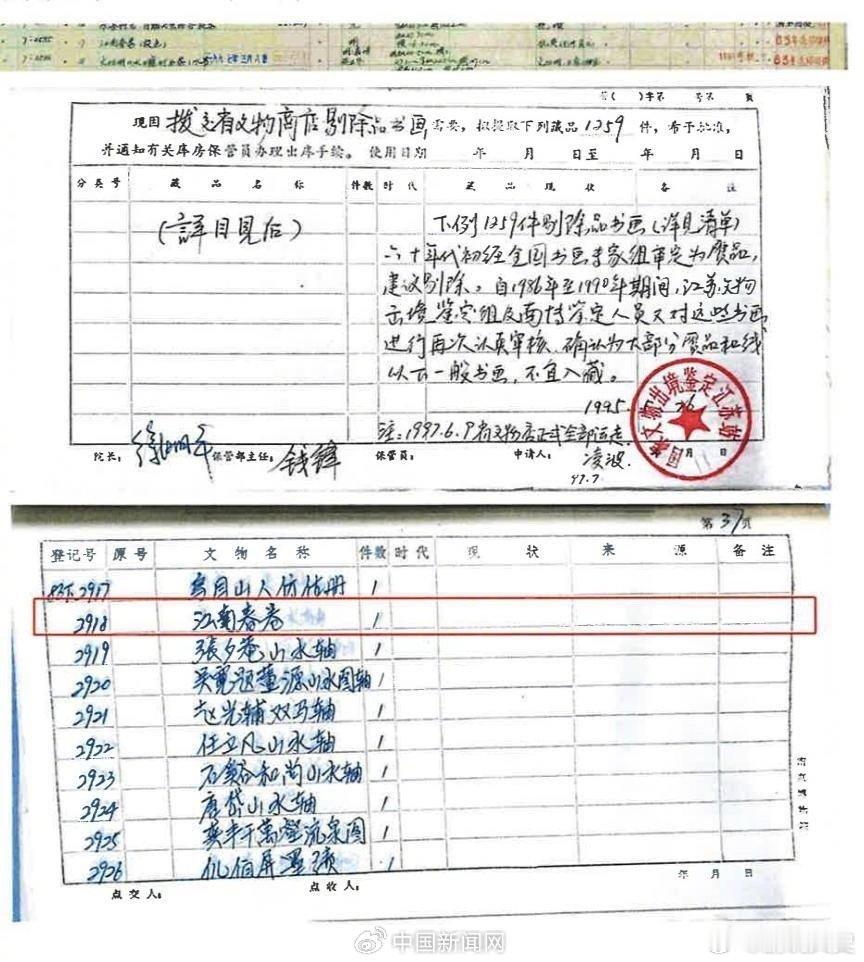 江南春卷(设色)
63年
第( )字第 号第 页
现因拨交省文物商店剔除品书画,需要,拟提取下列藏品1259件,希予批准,
并通知有关库房保管员办理出库手续。 使用日期 年 月 日至 年 月 日
分类号 藏品名称 件数 时代 藏品现状 备注
(詳目見后)
下例1259件剔除品书画(详见清单)
六十年代初经全国书画专家组审定为赝品,
建议剔除。自1986年至1990年期间,江苏文物
出境鉴定组及南博鉴定人员又对这些书画,
进行再次认真审核,确认为大部分赝品和线
以下一般书画,不宜入藏。
1995. 26
注:1997.6.9省文物店正式全部运走
年 月 日
院长:徐湖平 保管部主任:钱锋 保管员: 申请人:凌波
97.7
国家文物出境鉴定江苏站
第37页
登记号 原号 文物名称 件数 时代 现状 来源 备注
2917 山人仿古册 1
2918 江南春卷 1
2919 張夕菴山水轴 1
2920 吴寬题董源山水图轴 1
2921 赵光辅双马轴 1
2922 任立凡山水轴 1
2923 石谿和尚山水轴 1
2924 唐岱山水轴 1
2925 龚半千萬壑流泉图 1
2926 仇伯屏墨 1
点交人: 点收人: 年 月 日
南京博物院
中国新闻网